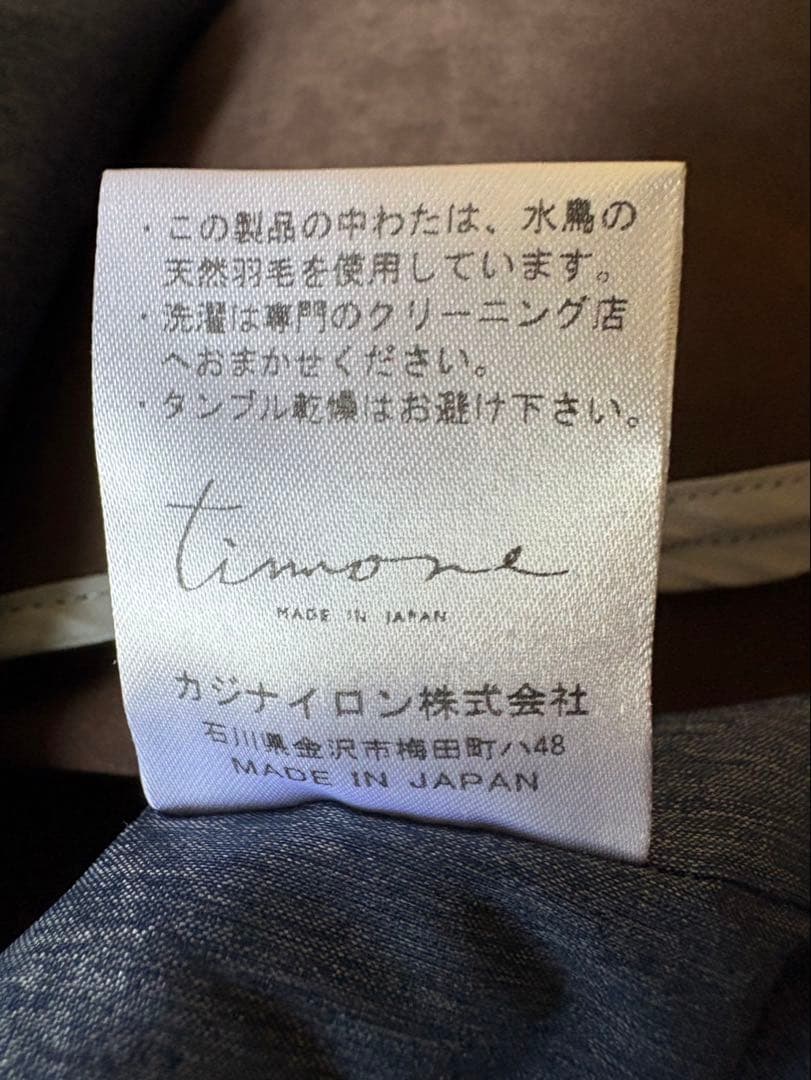 ・この製品の中わたは、水鳥の
天然羽毛を使用しています。
・洗濯は専門のクリーニング店
へおまかせください。
・タンブル乾燥はお避け下さい。
timone
MADE IN JAPAN
カジナイロン株式会社
石川県金沢市梅田町ハ48
MADE IN JAPAN